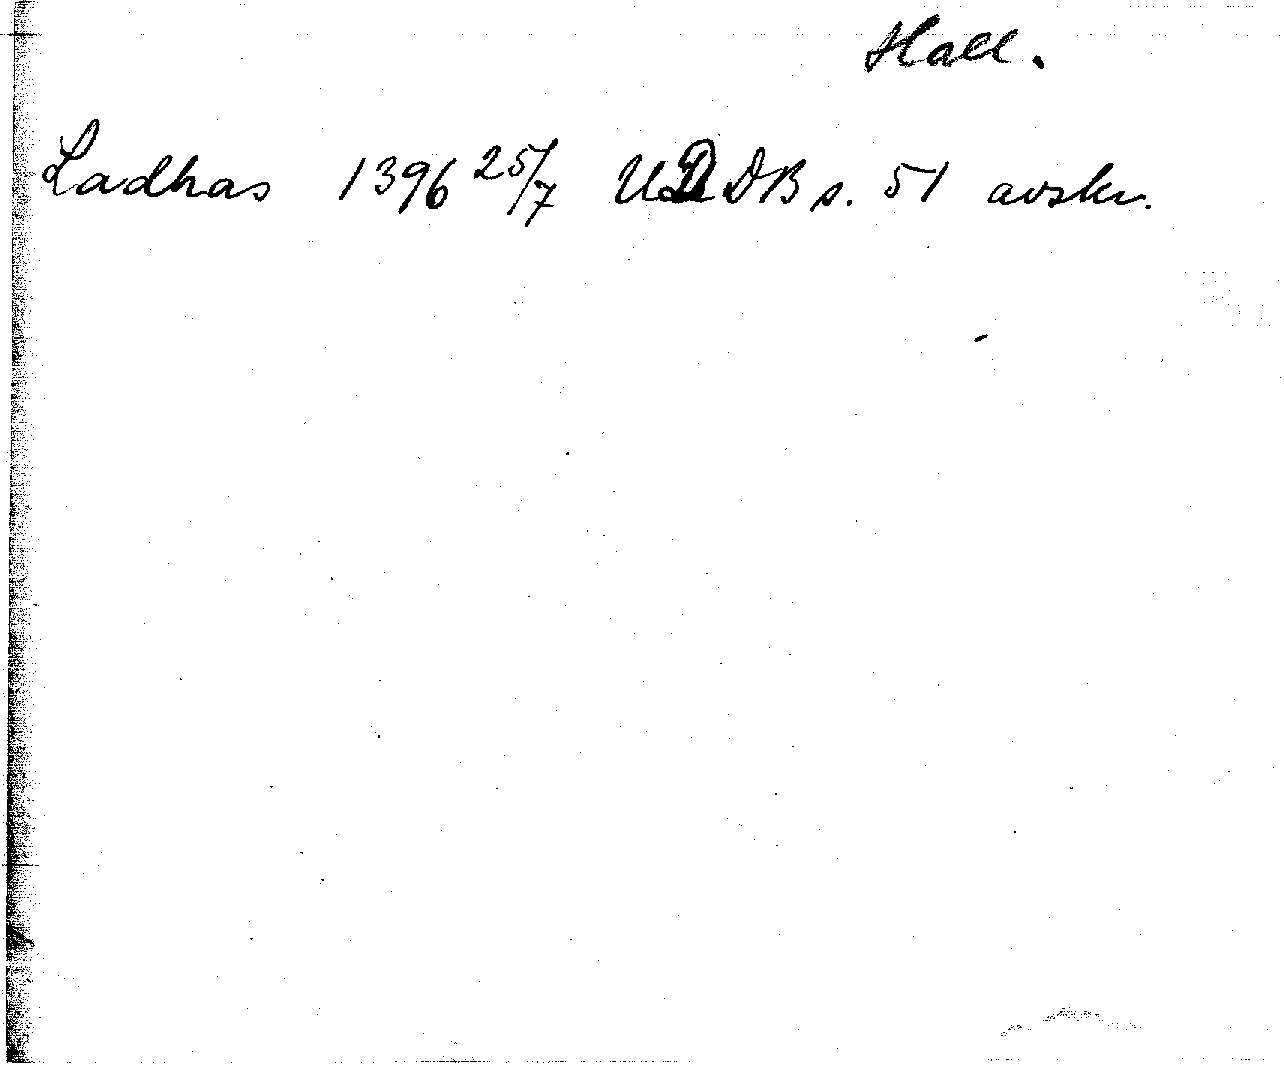 Hall.
Ladhas 1396 25/7 UDDB s. 51 avskr.